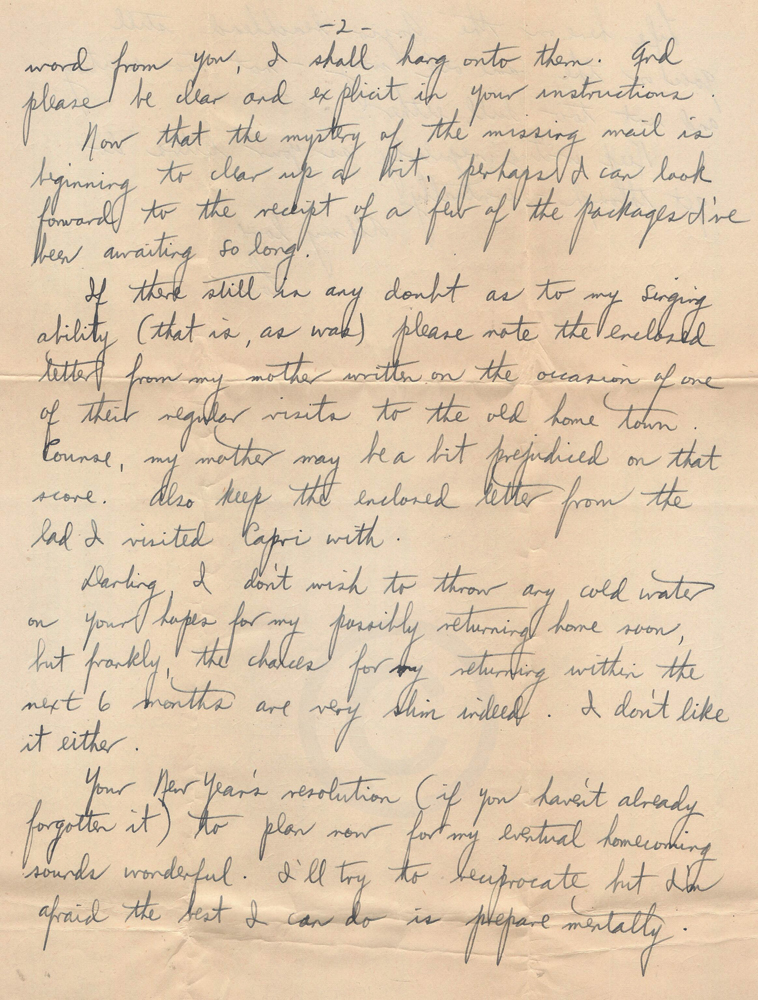 -2-
word from you, I shall hang onto them. And
please be clear and explicit in your instructions.
Now that the mystery of the missing mail is
beginning to clear up a bit, perhaps I can look
forward to the receipt of a few of the packages I've
been awaiting so long.
If there still is any doubt as to my singing
ability (that is, as was) please note the enclosed
letter from my mother written on the occasion of one
of their regular visits to the old home town.
Course, my mother may be a bit prejudiced on that
score. Also keep the enclosed letter from the
lad I visited Capri with.
Darling, I don't wish to throw any cold water
on your hopes for my possibly returning home soon,
but frankly, the chances for my returning within the
next 6 months are very slim indeed. I don't like
it either.
Your New Year's resolution (if you haven't already
forgotten it) to plan now for my eventual homecoming
sounds wonderful. I'll try to reciprocate but I'm
afraid the best I can do is prepare mentally.